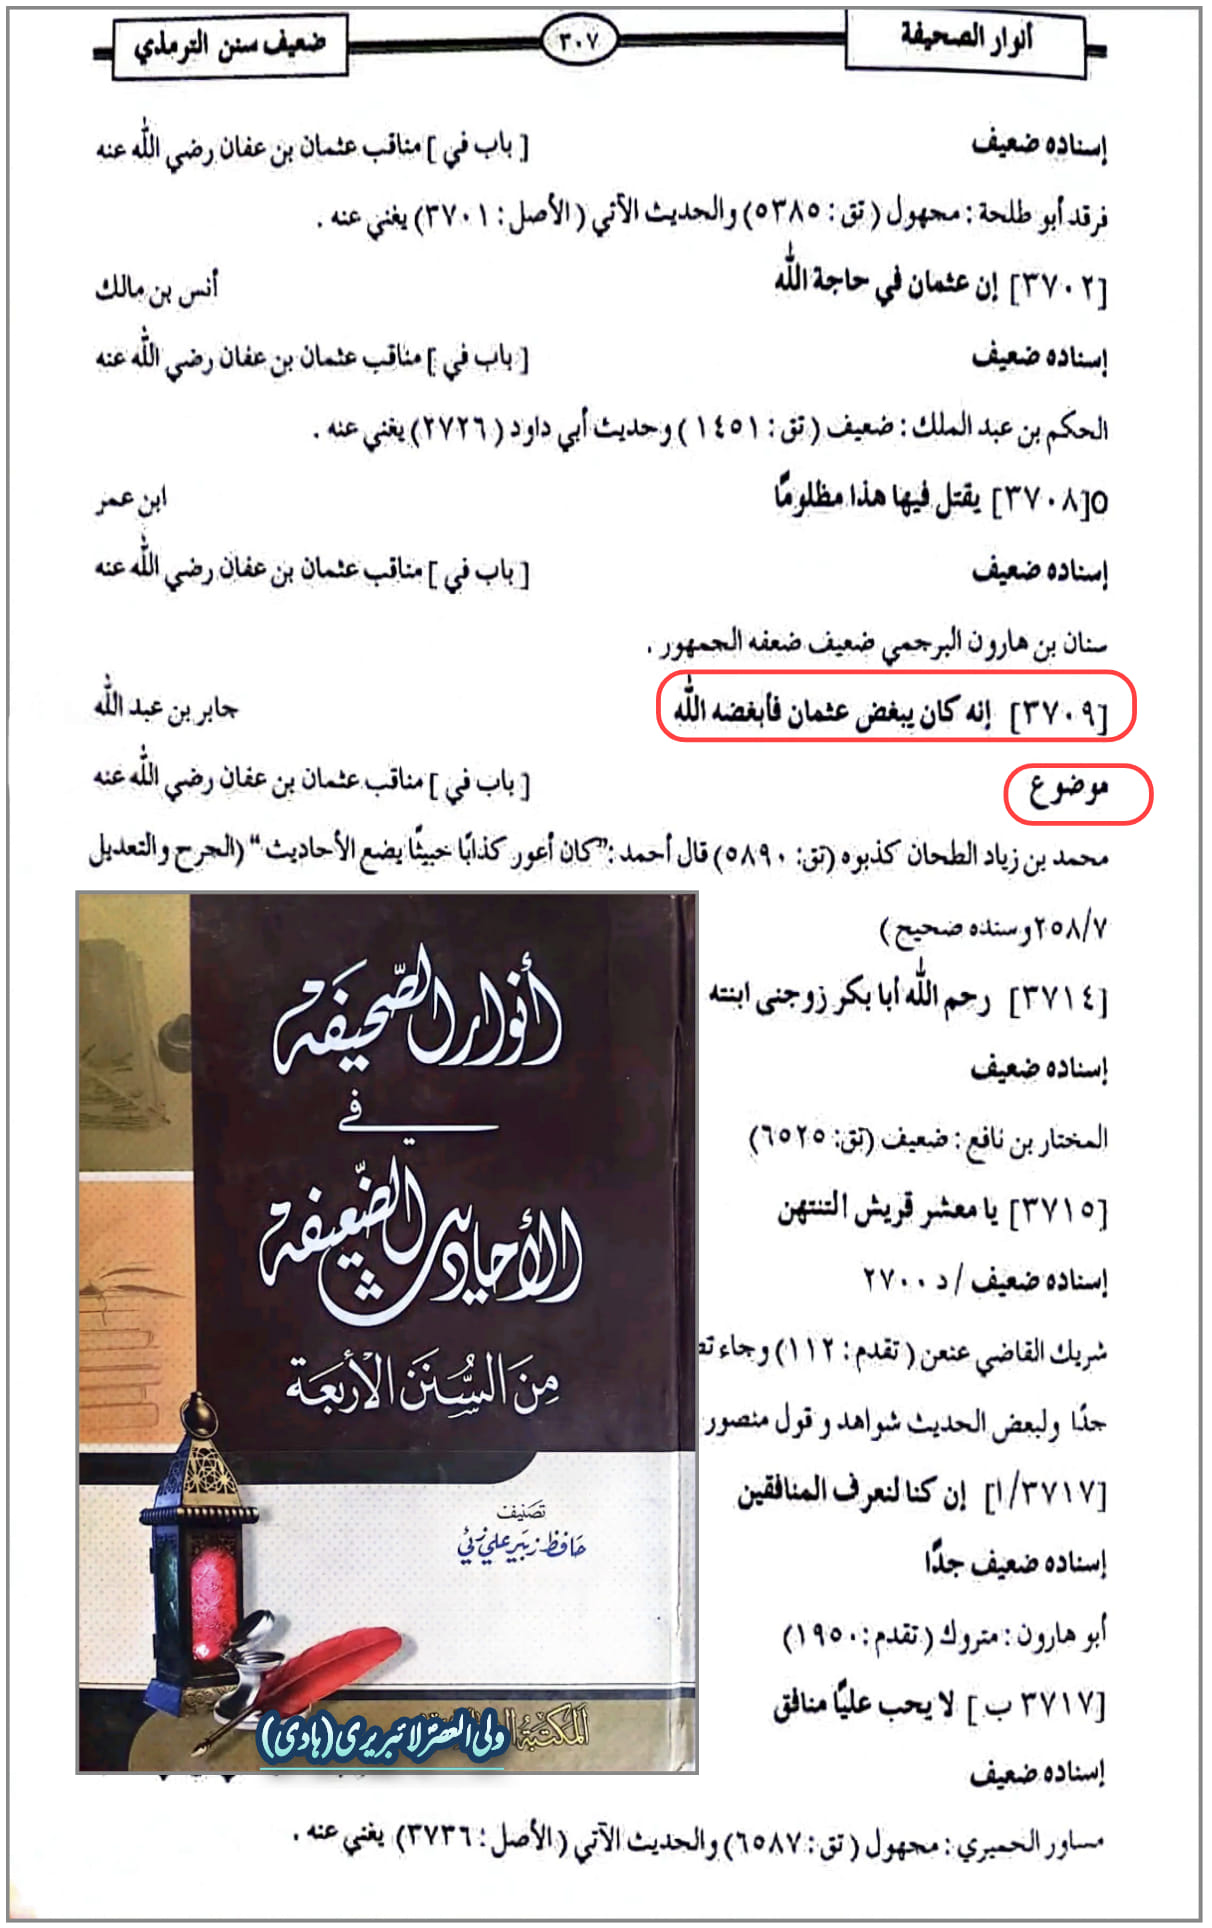 أنوار الصحيفة ٣٠٧ ضعيف سنن الترمذي
إسناده ضعيف [ باب في ] مناقب عثمان بن عفان رضي الله عنه
فرقد أبو طلحة : مجهول ( تق : ٥٣٨٥) والحديث الآتي ( الأصل : ٣٧٠١) يغني عنه .
[٣٧٠٢] إن عثمان في حاجة الله أنس بن مالك
إسناده ضعيف [ باب في ] مناقب عثمان بن عفان رضي الله عنه
الحكم بن عبد الملك : ضعيف ( تق : ١٤٥١ ) وحديث أبي داود ( ٢٧٢٦) يغني عنه .
٥[٣٧٠٨] يقتل فيها هذا مظلومًا ابن عمر
إسناده ضعيف [ باب في ] مناقب عثمان بن عفان رضي الله عنه
سنان بن هارون البرجمي ضعيف ضعفه الجمهور .
[٣٧٠٩] إنه كان يبغض عثمان فأبغضه الله جابر بن عبد الله
موضوع [ باب في ] مناقب عثمان بن عفان رضي الله عنه
محمد بن زياد الطحان كذبوه (تق: ٥٨٩٠) قال أحمد :"كان أعور كذابًا خبيثًا يضع الأحاديث " (الجرح والتعديل
٢٥٨/٧ وسنده صحيح )
[٣٧١٤] رحم الله أبا بكر زوجنى ابنته
إسناده ضعيف
المختار بن نافع : ضعيف (تق: ٦٥٢٥)
[٣٧١٥] يا معشر قريش التنتهن
إسناده ضعيف / د ٢٧٠٠
شريك القاضي عنعن ( تقدم : ١١٢) وجاء
جدًا ولبعض الحديث شواهد و قول منصور
[٣٧١٧/ا] إن كنا لنعرف المنافقين
إسناده ضعيف جدًا
أبو هارون : متروك ( تقدم : ١٩٥٠)
[٣٧١٧ ب ] لا يحب عليًا منافق
إسناده ضعيف
مساور الحميري : مجهول ( تق : ٦٥٨٧) والحديث الآتي ( الأصل : ٣٧٣٦) يغني عنه .
أنوار الصحيفة
في
الأحاديث الضعيفة
مِنَ السُّنَنِ الأربعة
تصنيف
حافظ زبير علي زئي
المكتبة
ولی العصرؑ لائبریری (ہادی)